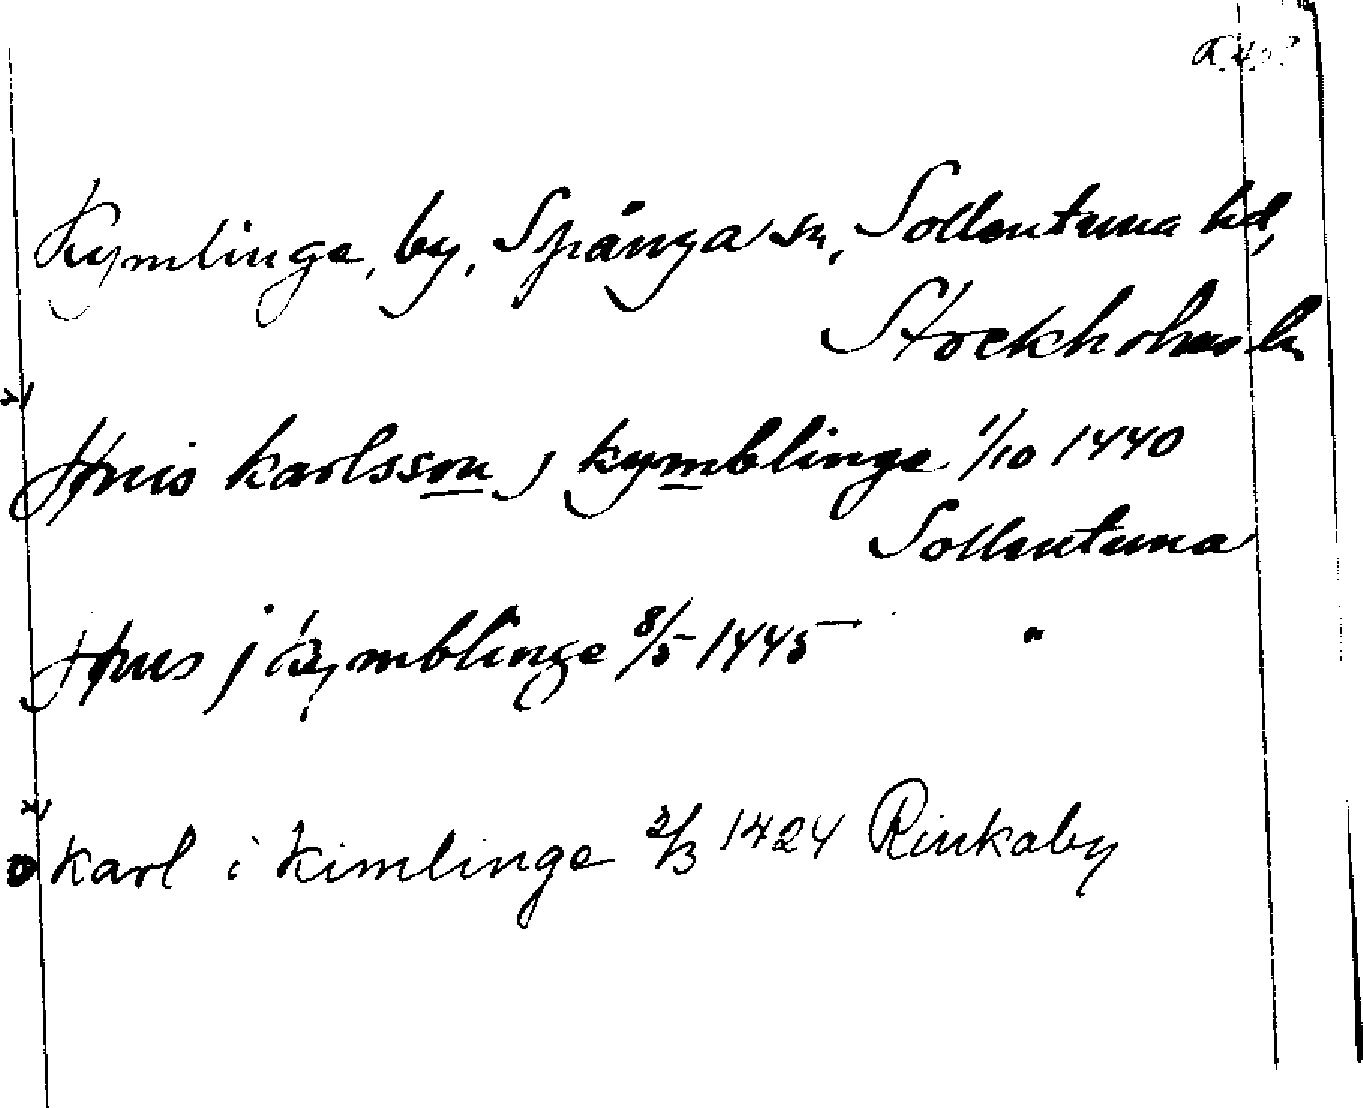 Kymlinge, by, Spånga sn, Sollentuna hd,
Stockholms ln
karlsson j kymblinge 1/10 1440
Sollentuna
j kymblinge 8/5 1445 "
karl i kimlinge 2/3 1424 Rinkaby